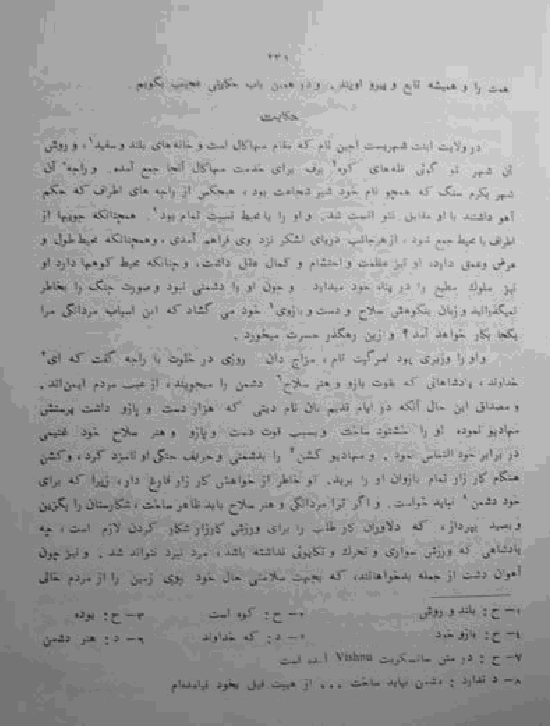 همت را و همیشه تابع و پیرو اویند، و در همین باب حکایتی عجیب بگویم.
حکایت
در ولایت شهریست اجین نام که مقام مهاکال است و خانه‌های بلند و سفید¹، و روش
آن شهر تو گوئی قله‌های کوه² برف برای خدمت مهاکال آنجا جمع آمده. و راجه³ آن
شهر بکرم سنگ که همچو نام خود شیر شجاعت بود، هیچکس از راجه های اطراف که حکم
آهو داشتند با او مقابل نتوانست شد. و او را با محیط نسبت تمام بود. همچنانکه جویها از
اطراف با محیط جمع شود، از هر جانب دریای لشکر نزد وی فراهم آمدی، و همچنانکه محیط طول و
عرض و عمق دارد، او نیز عظمت و احتشام و کمال عقل داشت، و چنانکه محیط کوهها دارد او
نیز ملوک مطیع را در پناه خود میدارد. و چون او را دشمنی نبود و صورت جنگ را بخاطر
نمیگذرانید و زبان بنکوهش سلاح و دست و بازوی⁴ خود می گشاد که این اسباب مردانگی مرا
یکجا بکار خواهد آمد؟ و ازین رهگذر حسرت میخورد.
و او را وزیری بود امرگپت نام، مزاج دان. روزی در خلوت با راجه گفت که ای⁵
خداوند، پادشاهانی که بقوت بازو و هنر سلاح⁶ دشمن را میجویند، از عیب مردم ایمن‌اند.
و مصداق این حال آنکه در ایام قدیم بان نام دیتی که هزار دست و بازو داشت پرستش
مهادیو نموده او را خشنود ساخت و بسبب قوت دست و بازو و هنر سلاح خود غنیمی
در برابر خود التماس نمود. و مهادیو کشن⁷ را بدشمنی و حریف جنگی او نامزد کرد، و کشن
هنگام کارزار تمام بازوان او را برید. تو خاطر از خواهش کار زار فارغ دار، زیرا که برای
خود دشمن⁸ نباید خواست. و اگر ترا مردانگی و هنر سلاح باید ظاهر ساخت، شکارستان را بگزین
و بصید بپرداز، که دلاوران کار طلب را برای ورزش کارزار شکار کردن لازم است، چه
پادشاهی که ورزش سواری و تحرک و تکاپوئی نداشته باشد، مرد نبرد نتواند شد. و نیز چون
آهوان دشت از جمله بدخواهانند، که بجهت سلامتی حال خود روی زمین را از مردم خالی
۱- ح: بلند و روش ۲- ح: کوه است ۳- ح: بوده
۴- ح: بازو خود ۵- د: که خداوند ۶- د: هنر دشمن
۷- ح: در متن سانسکریت Vishnu آمده است
۸- د ندارد: دشمن نباید ساخت ... از هیبت فیل بخود